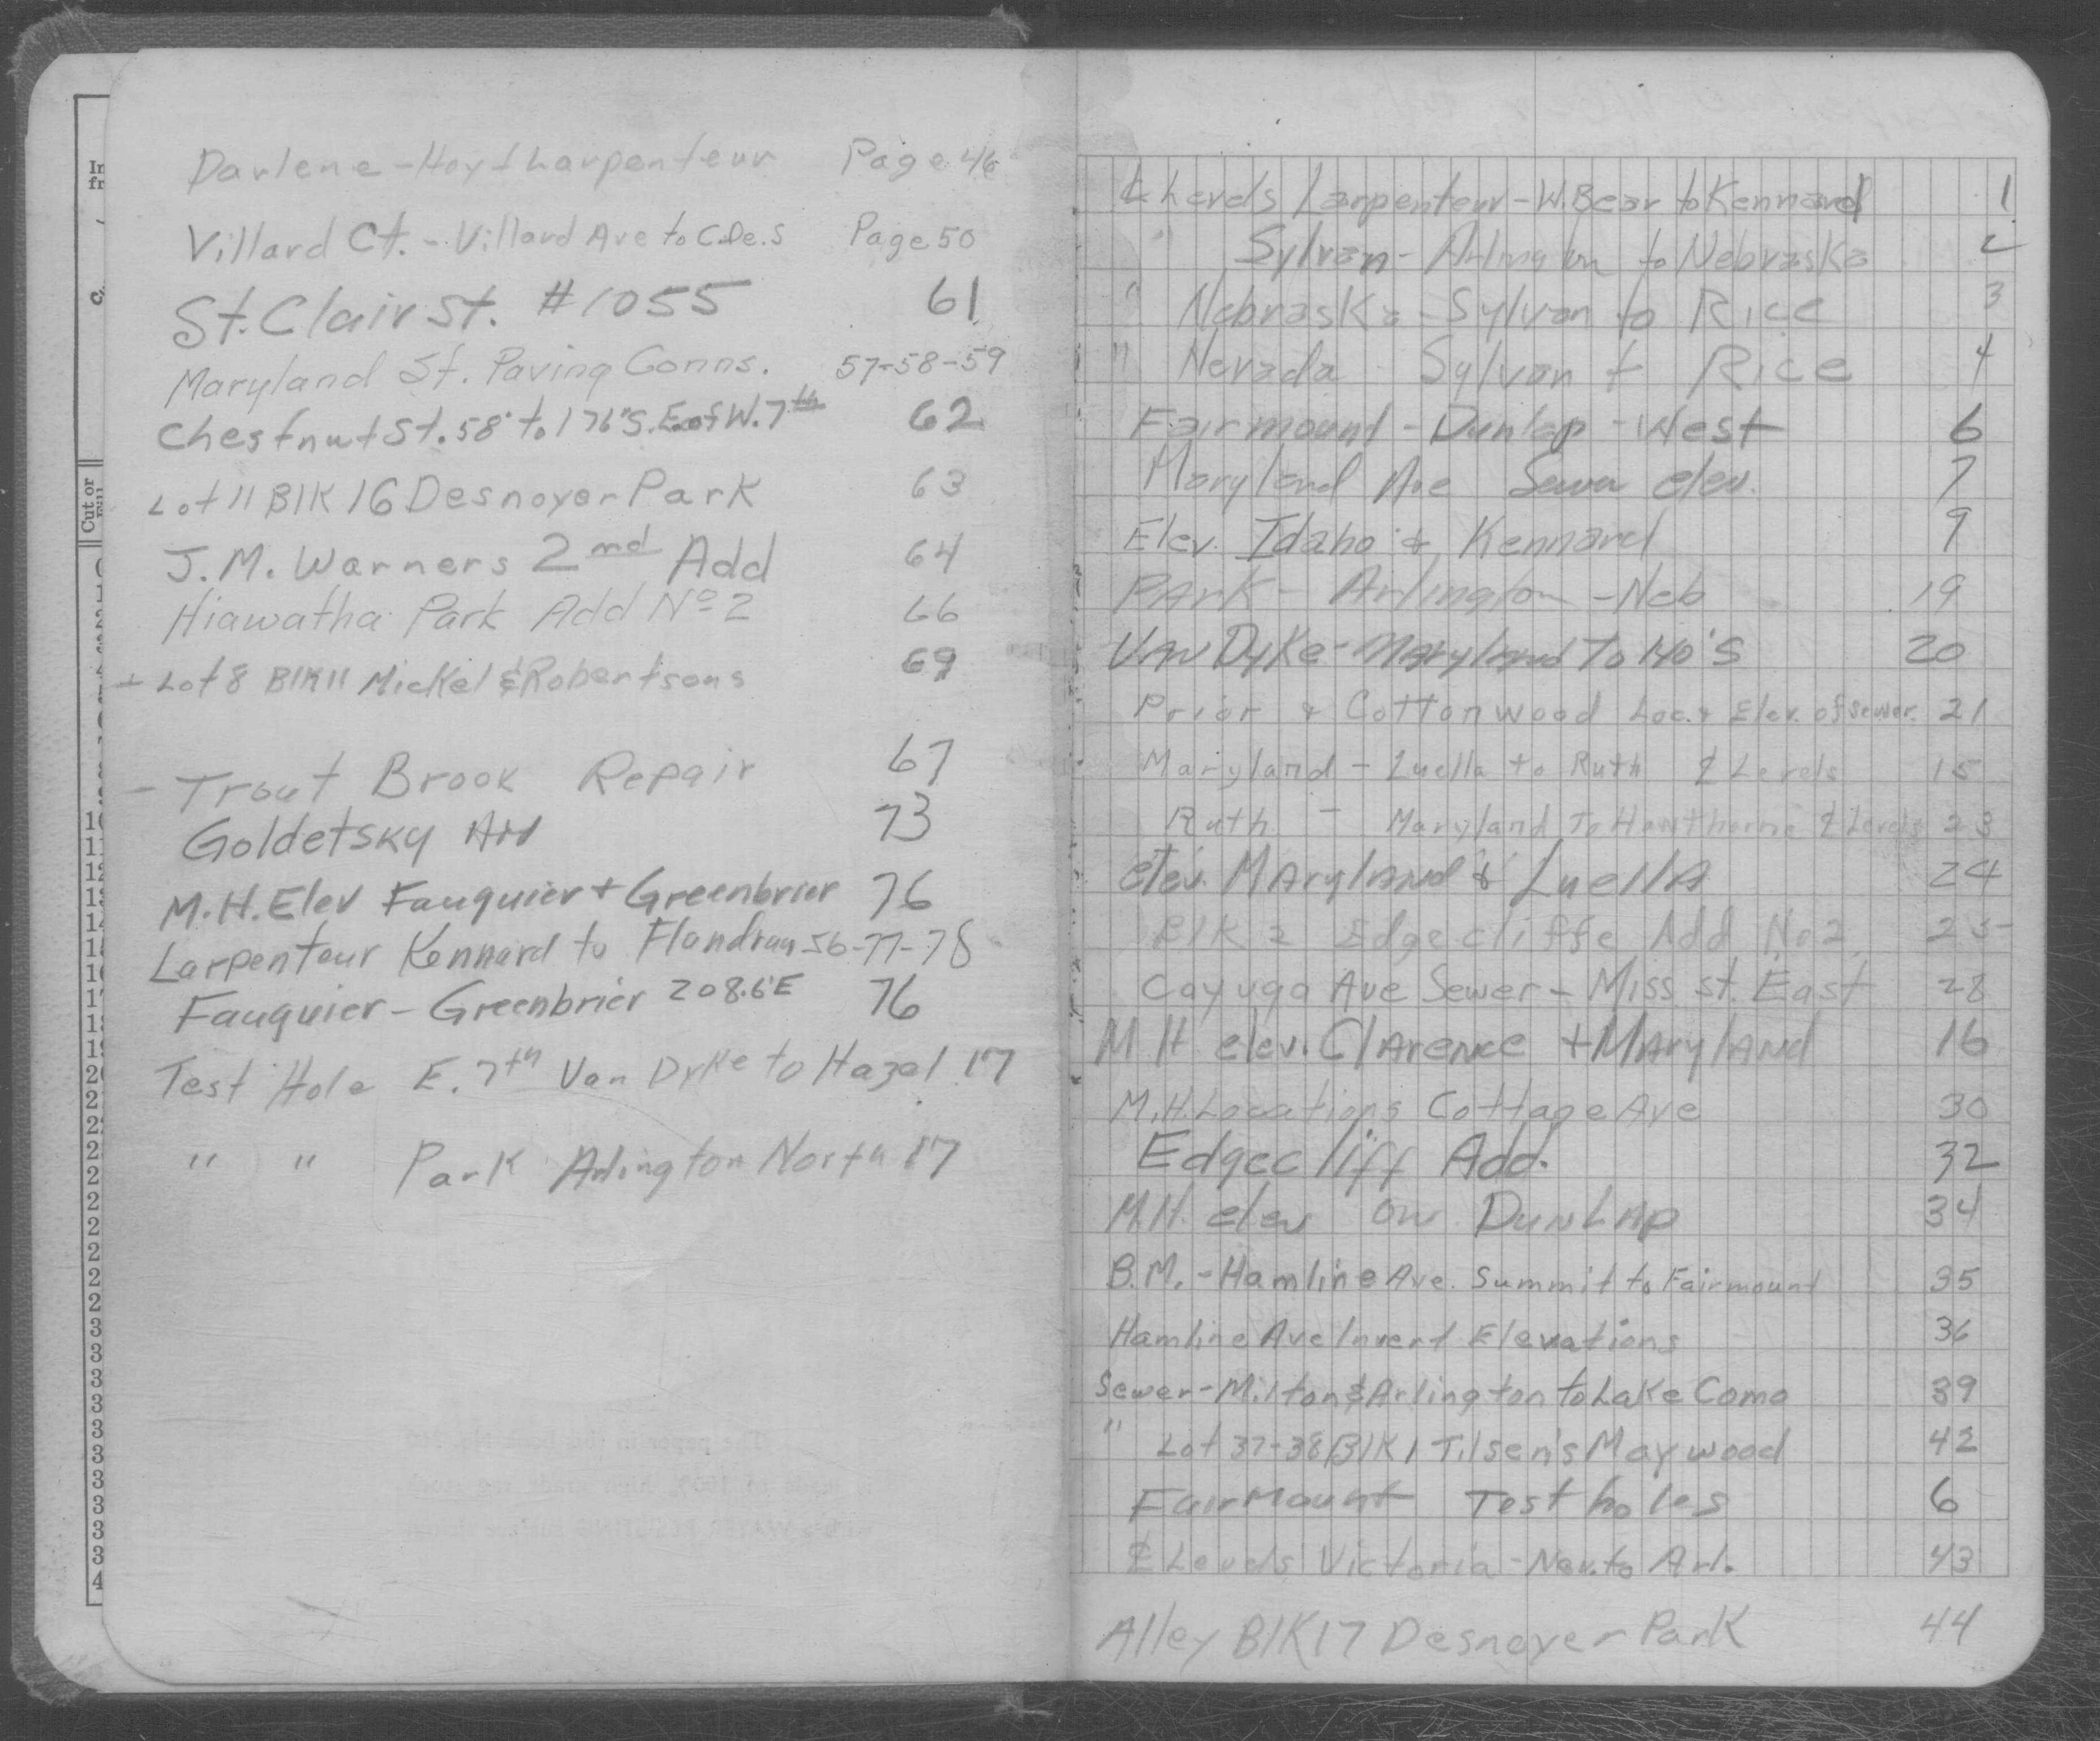 Darlene - Hoyt Larpenteur Page 46
Villard Ct. - Villard Ave to C.De.S Page 50
St. Clair St. #1055 61
Maryland St. Paving Conns. 57-58-59
Chestnut St. 58' to 176' S.E. of W. 7th 62
Lot 11 Blk 16 Desnoyer Park 63
J.M. Warners 2nd Add 64
Hiawatha Park Add No 2 66
Lot 8 Blk 11 Mickel & Robertsons 69
- Trout Brook Repair 67
Goldetsky Add 73
M.H. Elev Fauquier + Greenbrier 76
Larpenteur Kennard to Flandrau 56-77-78
Fauquier - Greenbrier 208.6'E 76
Test Hole E. 7th Van Dyke to Hazel 17
" " Park Arlington North 17
℄ Levels Larpenteur - W. Bear to Kennard 1
" Sylvan - Arlington to Nebraska 2
" Nebraska - Sylvan to Rice 3
" Nevada Sylvan + Rice 4
Fairmount - Dunlap - West 6
Maryland Ave Sewer elev. 7
Elev. Idaho & Kennard 9
Park - Arlington - Neb 19
Van Dyke - Maryland To 140'S 20
Prior & Cottonwood Loc. & Elev. of Sewer 21
Maryland - Luella to Ruth ℄ Levels 15
Ruth - Maryland To Hawthorne ℄ Levels 23
elev. Maryland & Luella 24
Blk 2 Edgecliffe Add No 2 25
Cayuga Ave Sewer - Miss St. East 28
M H elev. Clarence + Maryland 16
M.H. Locations Cottage Ave 30
Edgecliff Add. 32
M.H. elev on Dunlap 34
B.M. - Hamline Ave. Summit to Fairmount 35
Hamline Ave Invert Elevations 36
Sewer - Milton & Arlington to Lake Como 39
" Lot 37-38 Blk 1 Tilsen's Maywood 42
Fairmount Test holes 6
℄ Levels Victoria - Nev. to Arl. 43
Alley Blk 17 Desnoyer Park 44